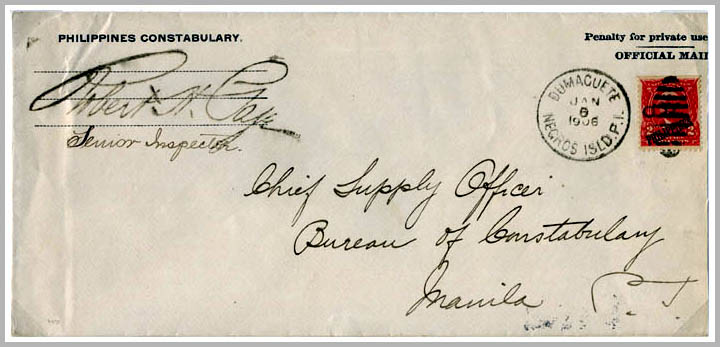 PHILIPPINES CONSTABULARY.
Penalty for private use
OFFICIAL MAIL
Robert
Senior Inspector.
DUMAGUETE
JAN
6
1906
NEGROS ISLD. P.I.
Chief Supply Officer
Bureau of Constabulary
Manila P.I.